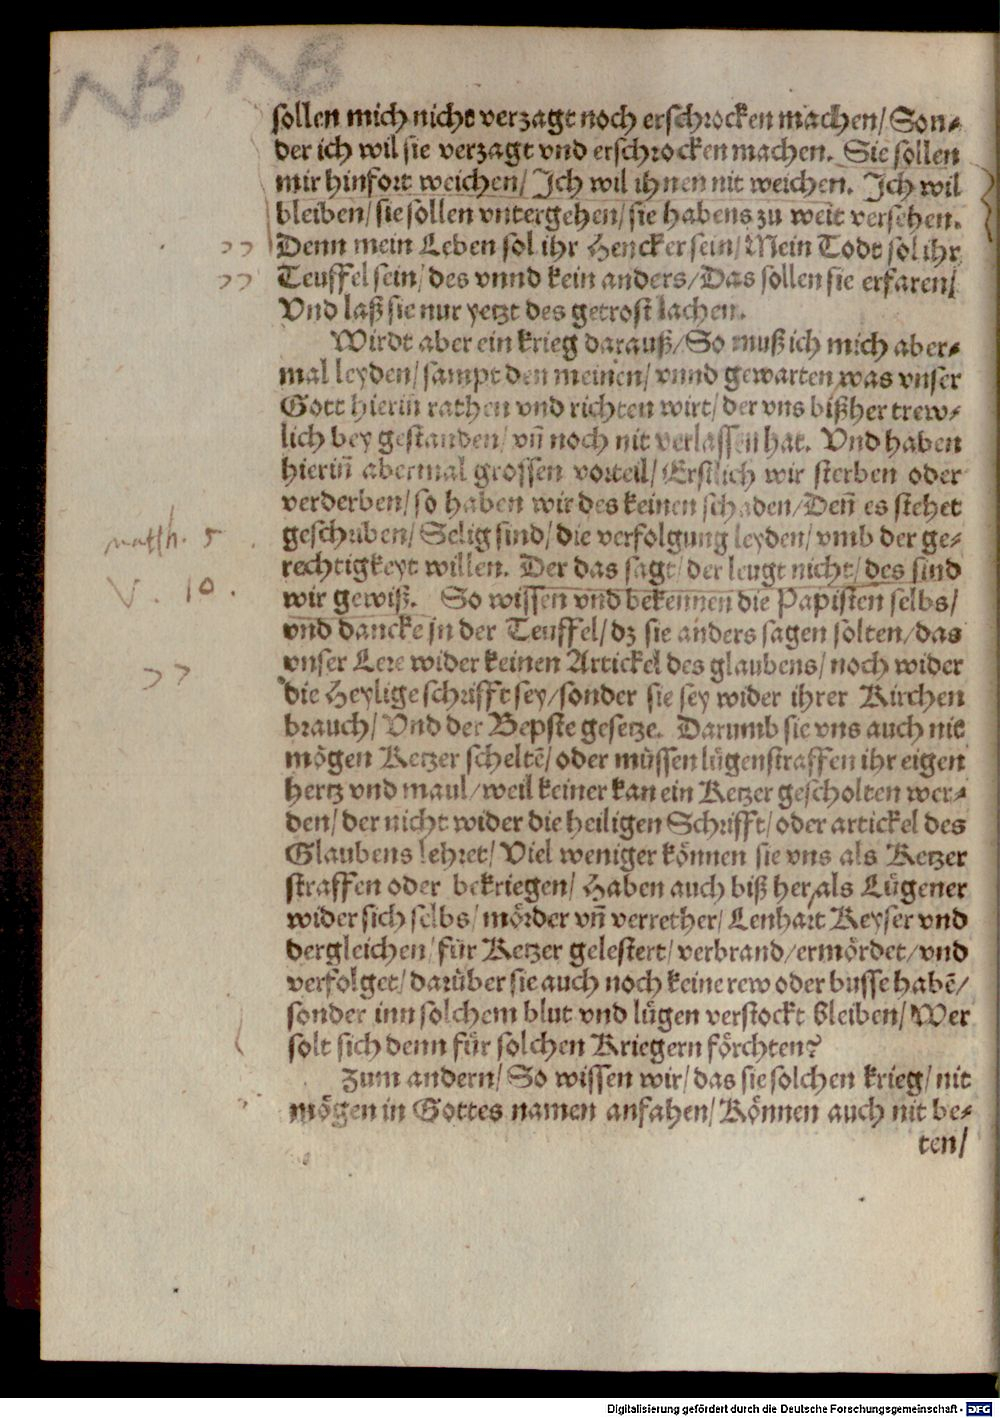 NB NB
sollen mich nicht verzagt noch erschrocken machen/ Son⸗
der ich wil sie verzagt vnd erschrocken machen. Sie sollen
mir hinfort weichen/ Ich wil ihnen nit weichen. Ich wil
bleiben/ sie sollen vntergehen/ sie habens zu weit versehen.
Denn mein Leben sol ihr Hencker sein/ Mein Todt sol ihr
Teuffel sein/ des vnnd kein anders/ Das sollen sie erfaren/
Vnd laß sie nur yetzt des getrost lachen.
Wirdt aber ein krieg darauß/ So muß ich mich aber⸗
mal leyden/ sampt den meinen/ vnnd gewarten was vnser
Gott hieriñ rathen vnd richten wirt/ der vns bißher trew⸗
lich bey gestanden/ vñ noch nit verlassen hat. Vnd haben
hieriñ abermal grossen vorteil/ Erstlich wir sterben oder
verderben/ so haben wir des keinen schaden/ Deñ es stehet
geschriben/ Selig sind/ die verfolgung leyden/ vmb der ge⸗
rechtigkeyt willen. Der das sagt/ der leugt nicht/ des sind
wir gewiß. So wissen vnd bekennen die Papisten selbs/
vnd dancke jn der Teuffel/ dz sie anders sagen solten/ das
vnser Lere wider keinen Artickel des glaubens/ noch wider
die Heylige schrifft sey/ sonder sie sey wider ihrer Kirchen
brauch/ Vnd der Bepste gesetze. Darumb sie vns auch nit
mögen Ketzer scheltē/ oder müssen lügenstraffen ihr eigen
hertz vnd maul/ weil keiner kan ein Ketzer gescholten wer⸗
den/ der nicht wider die heiligen Schrifft/ oder artickel des
Glaubens lehret/ Viel weniger können sie vns als Ketzer
straffen oder bekriegen/ Haben auch biß her/ als Lügener
wider sich selbs/ mörder vñ verrether/ Lenhart Keyser vnd
dergleichen/ für Ketzer gelestert/ verbrand/ ermördet/ vnd
verfolget/ darüber sie auch noch keine rew oder busse habē/
sonder inn solchem blut vnd lügen verstockt bleiben/ Wer
solt sich denn für solchen Kriegern förchten?
Zum andern/ So wissen wir/ das sie solchen krieg/ nit
mögen in Gottes namen anfahen/ Können auch nit be⸗
ten/
matth. 5
V. 10.
Digitalisierung gefördert durch die Deutsche Forschungsgemeinschaft - DFG